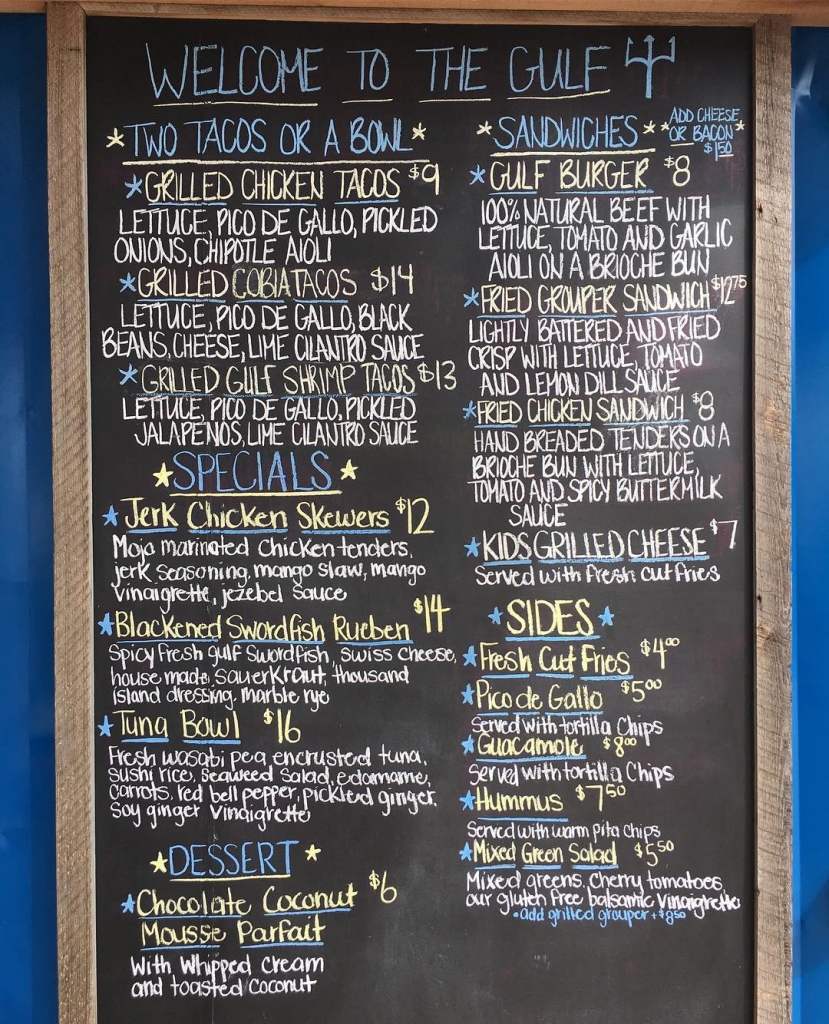 WELCOME TO THE GULF
TWO TACOS OR A BOWL
GRILLED CHICKEN TACOS $9
LETTUCE, PICO DE GALLO, PICKLED
ONIONS, CHIPOTLE AIOLI
GRILLED COBIA TACOS $14
LETTUCE, PICO DE GALLO, BLACK
BEANS, CHEESE, LIME CILANTRO SAUCE
GRILLED GULF SHRIMP TACOS $13
LETTUCE, PICO DE GALLO, PICKLED
JALAPEÑOS, LIME CILANTRO SAUCE
SPECIALS
Jerk Chicken Skewers $12
Mojo marinated chicken tenders,
jerk seasoning, mango slaw, mango
vinaigrette, jezebel sauce
Blackened Swordfish Rueben $14
Spicy fresh gulf swordfish, swiss cheese,
house made sauerkraut, thousand
island dressing, marble rye
Tuna Bowl $16
Fresh wasabi pea encrusted tuna,
sushi rice, seaweed salad, edamame,
carrots, red bell pepper, pickled ginger,
soy ginger vinaigrette
DESSERT
Chocolate Coconut $6
Mousse Parfait
With whipped cream
and toasted coconut
SANDWICHES
ADD CHEESE
OR BACON
$1.50
GULF BURGER $8
100% NATURAL BEEF WITH
LETTUCE, TOMATO AND GARLIC
AIOLI ON A BRIOCHE BUN
FRIED GROUPER SANDWICH $12.75
LIGHTLY BATTERED AND FRIED
CRISP WITH LETTUCE, TOMATO
AND LEMON DILL SAUCE
FRIED CHICKEN SANDWICH $8
HAND BREADED TENDERS ON A
BRIOCHE BUN WITH LETTUCE,
TOMATO AND SPICY BUTTERMILK
SAUCE
KIDS GRILLED CHEESE $7
Served with fresh cut fries
SIDES
Fresh Cut Fries $4.00
Pico de Gallo $5.00
Served with tortilla chips
Guacamole $8.00
Served with tortilla chips
Hummus $7.50
Served with warm pita chips
Mixed Green Salad $5.50
Mixed greens, cherry tomatoes,
our gluten free balsamic vinaigrette
•add grilled grouper +$8.50